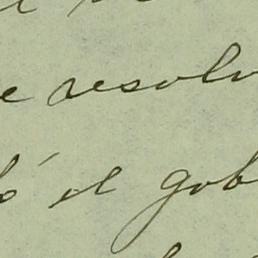 e resolv
ó el gob